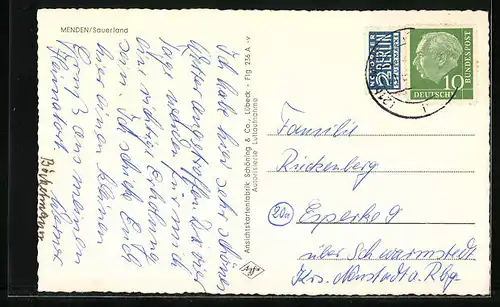 MENDEN/Sauerland
Ich habe hier sehr schönes
Wetter angetroffen. Die vier
Tage werden für mich
eine richtige Erholung
sein. Ich schicke Euch
hier einen kleinen
Gruß aus meinem
Heimatort. Werner
Ansichtskartenfabrik Schöning & Co., Lübeck - Flg 236 A -v
Autorisierte Luftaufnahme
Agfa
NOTOPFER
2 BERLIN
STEUERMARKE
DEUTSCHE
BUNDESPOST
10
(21b)
Familie
Rieckenberg
(20a)
Esperke 9
über Schwarmstedt
Krs. Neustadt a. Rbg